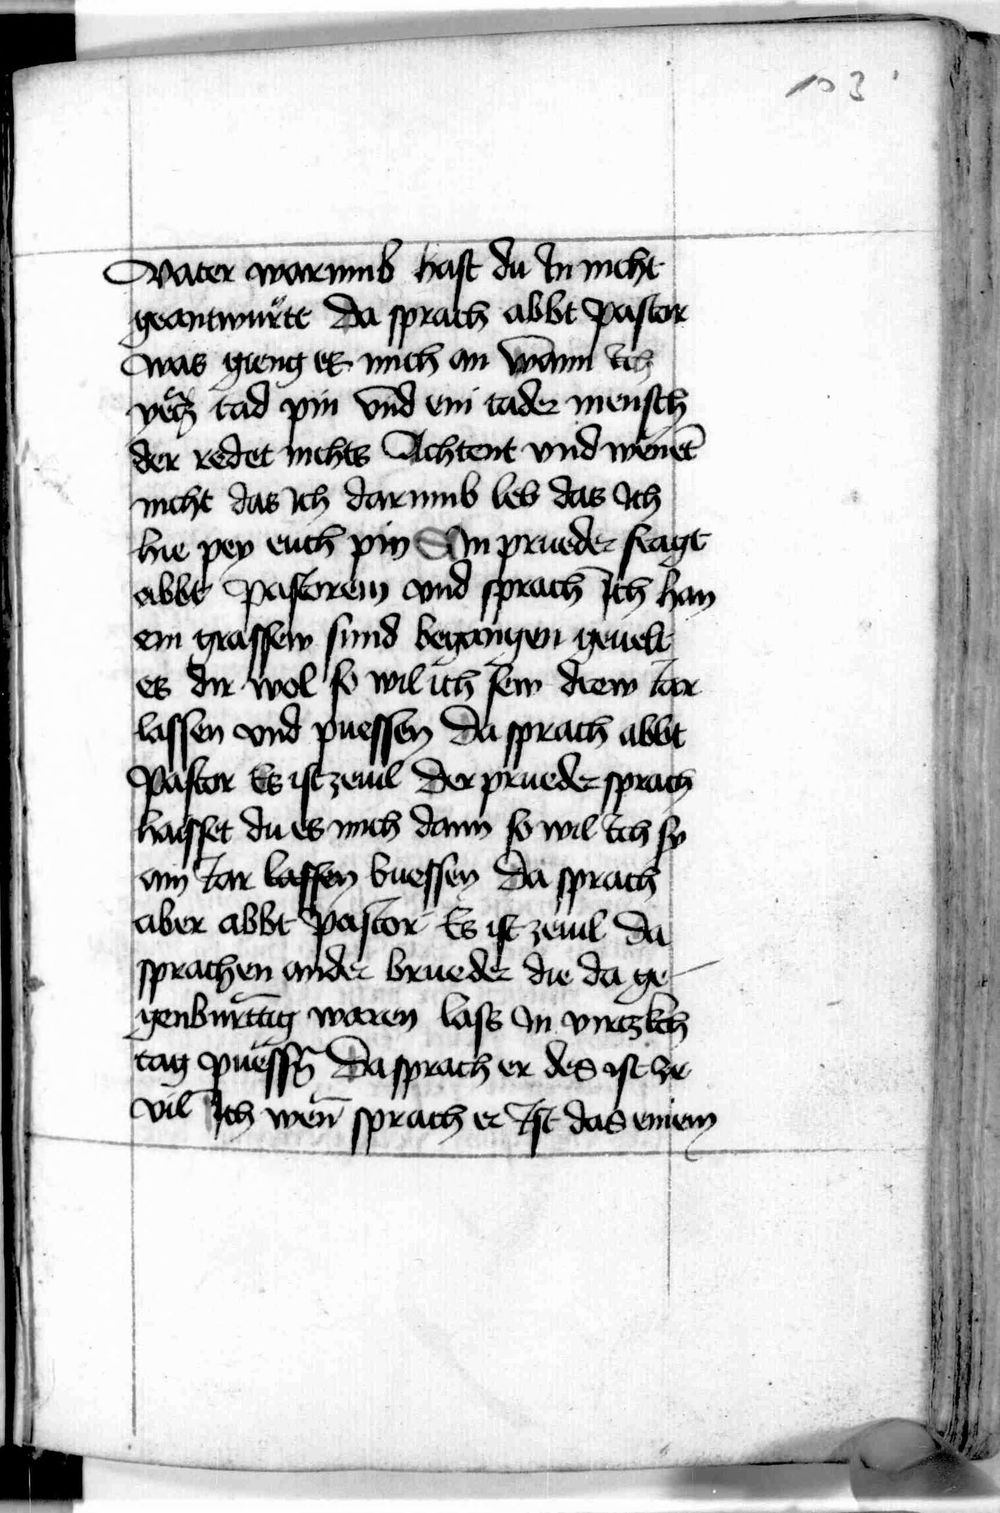 103
Vater warumb hast du In nicht
geantwürtt Da sprach abbt Pastor
was gieng es mich an Wānn Ich
yecz tad pin vnd ein tader mensch
der redet nichts Achtent vnd wēnet
nicht das Ich darumb leb das Ich
hie pey euch pin Ain prueder fragt
abbt Pastorem vnd sprach Ich han
ein grassew sund begangen geuelt
es dir wol so wil ich sew drew Iar
lassen vnd puessen Da sprach abbt
Pastor Es ist zeuil Der prueder sprach
haisset du es mich dann so wil Ich sy
ain Iar lassen buessen Da sprach
aber abbt Pastor Es ist zeuil Da
sprachen ander brueder die da ge-
genburttig waren lass In virtzkch
tag puessñ Da sprach er des ist ze
vil Ich wen̄ sprach er Ist das einem